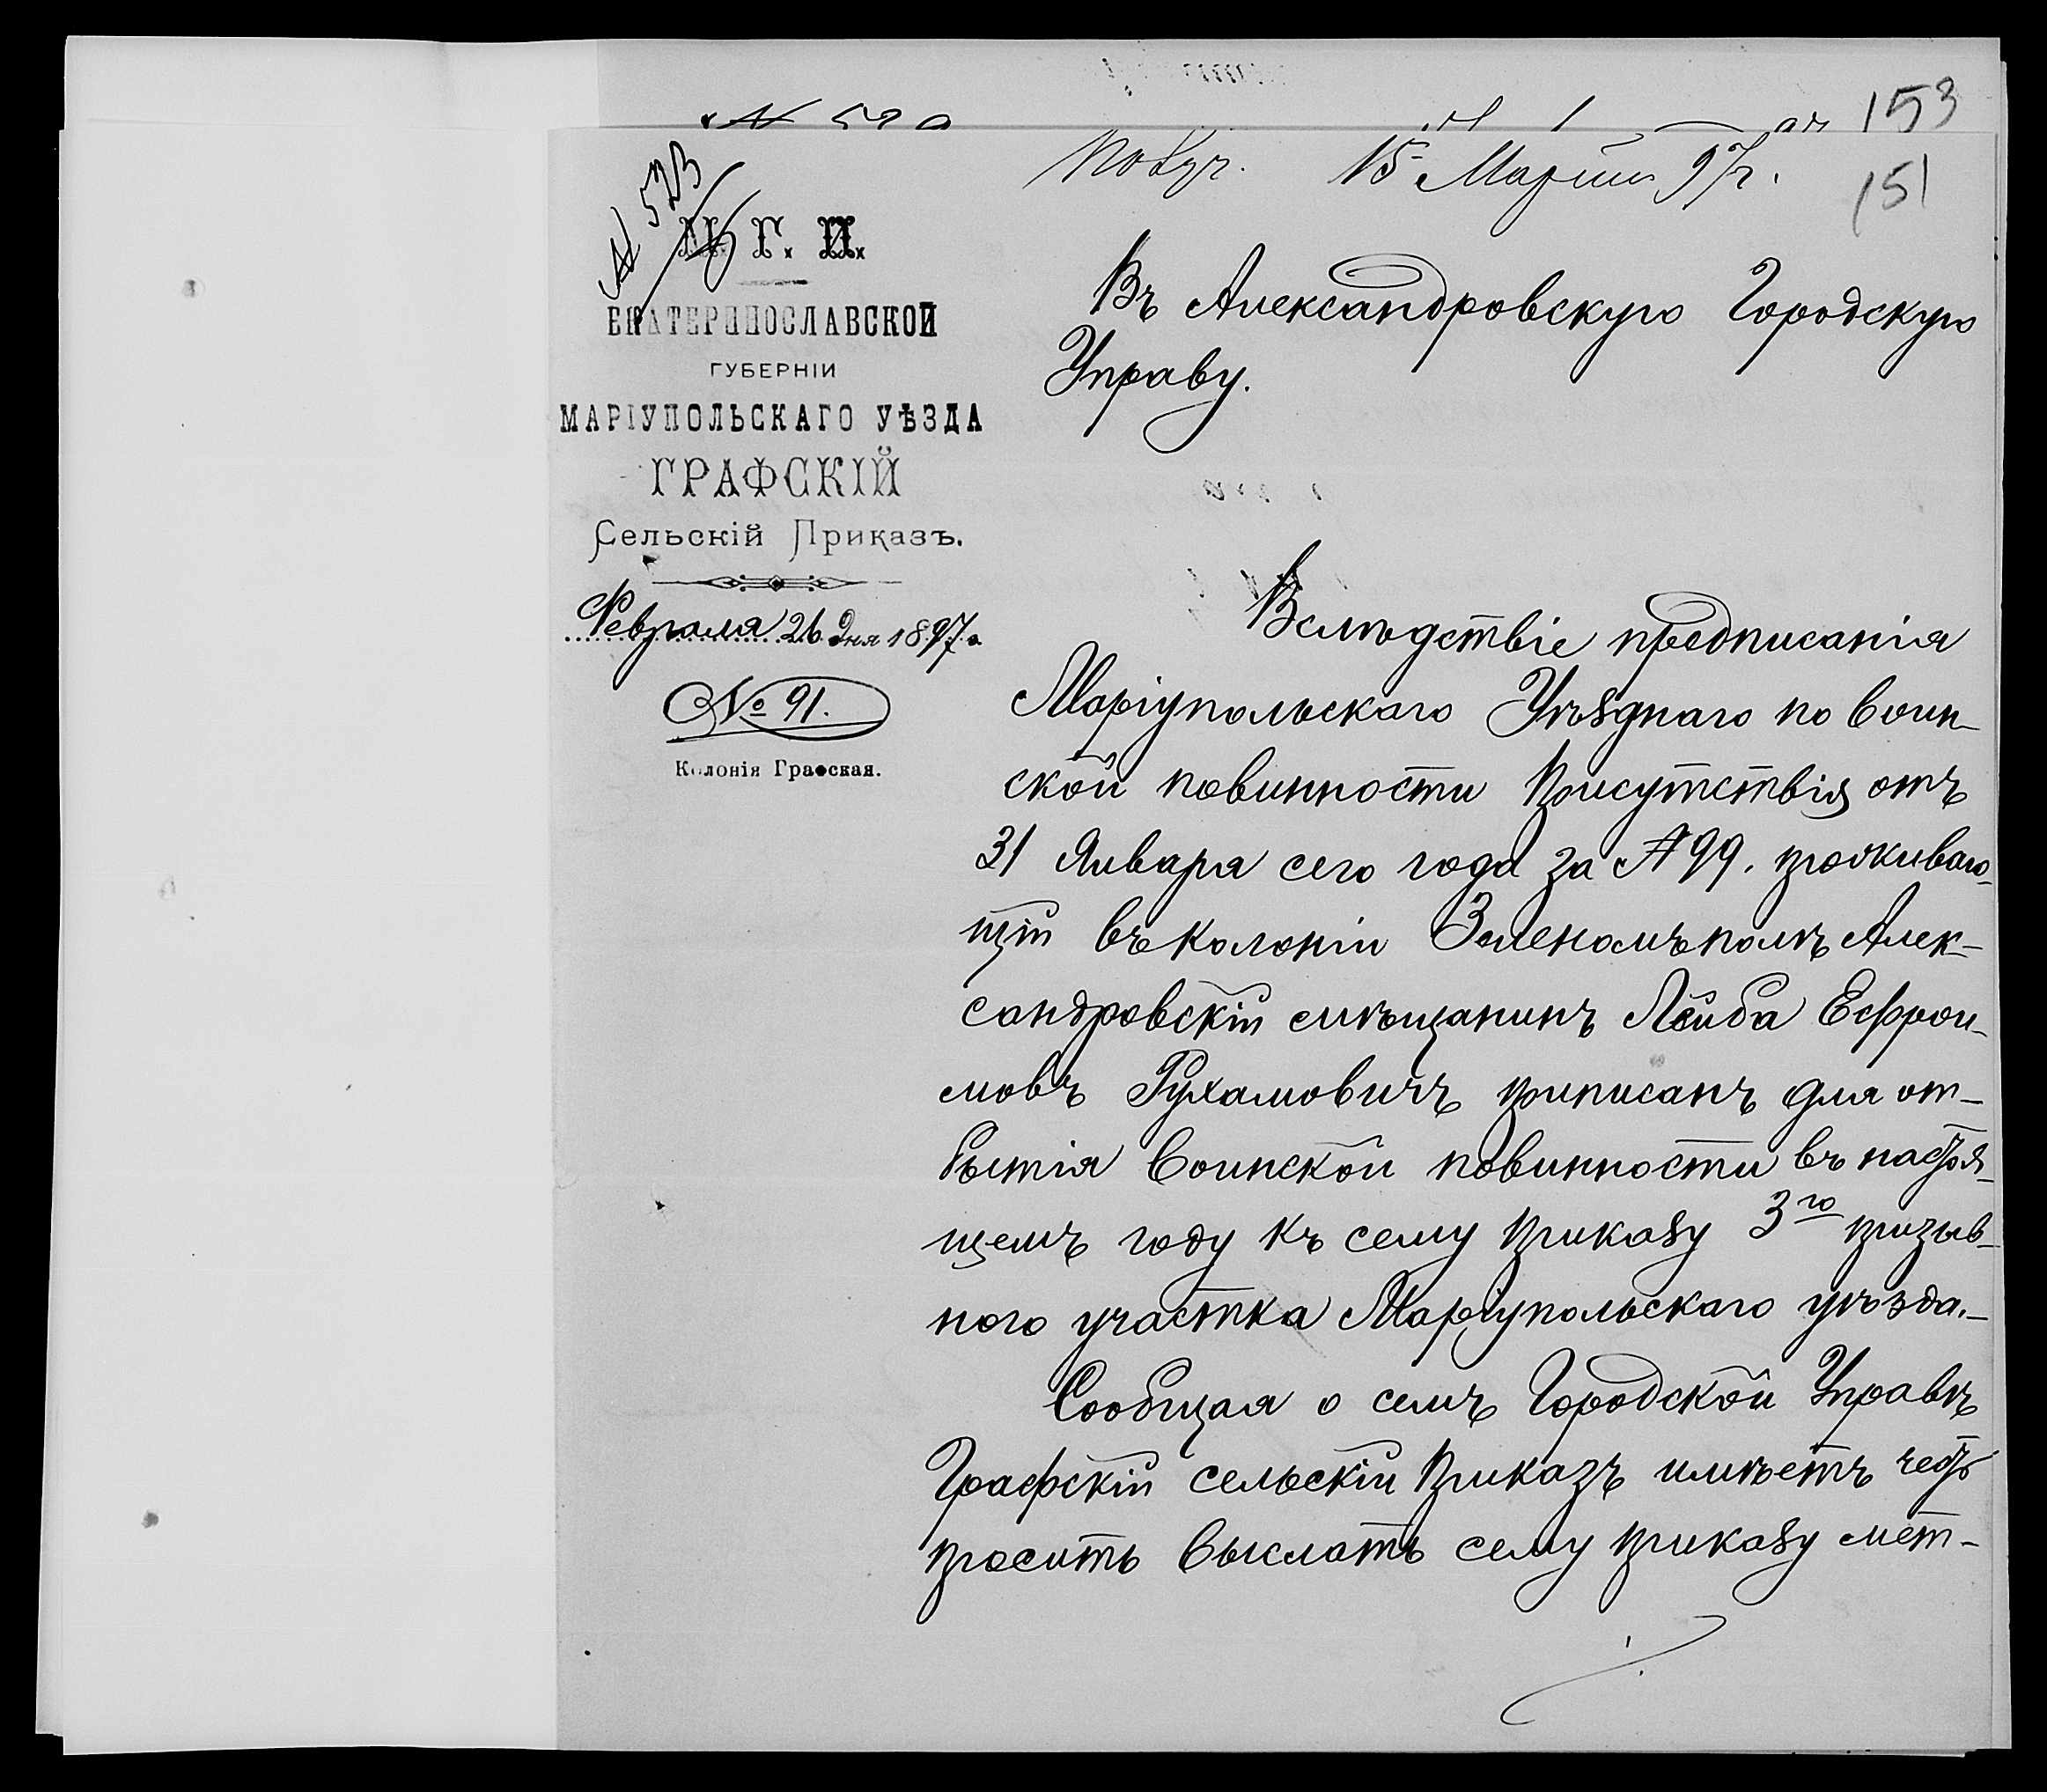 153
Получ. 15 Марта 97 г.
151
№ 523
М. Г. И.
ЕКАТЕРИНОСЛАВСКОЙ
ГУБЕРНІИ
МАРІУПОЛЬСКАГО УѢЗДА
ГРАФСКІЙ
Сельскій Приказъ.
Февраля 26 дня 1897 г.
№ 91.
Колонія Графская.
Въ Александровскую Городскую
Управу.
Вслѣдствіе предписанія
Маріупольскаго Уѣзднаго по воин-
ской повинности Присутствія отъ
31 Января сего года за № 99. проживаю-
щій въ колоніи Зеленомъполѣ Алек-
сандровскій мѣщанинъ Лейба Ефрои-
мовъ Рухамовичъ приписанъ для от-
бытія воинской повинности въ настоя-
щемъ году къ сему приказу 3го призыв-
ного участка Маріупольскаго уѣзда.-
Сообщая о семъ Городской Управѣ
Графскій сельскій приказъ имѣетъ честь
просить выслать сему приказу мет-